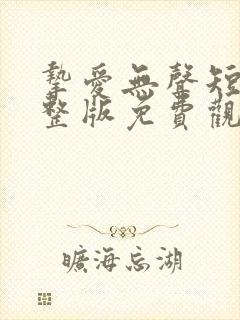 摯愛無聲短
整版免費觀
曠海忘湖